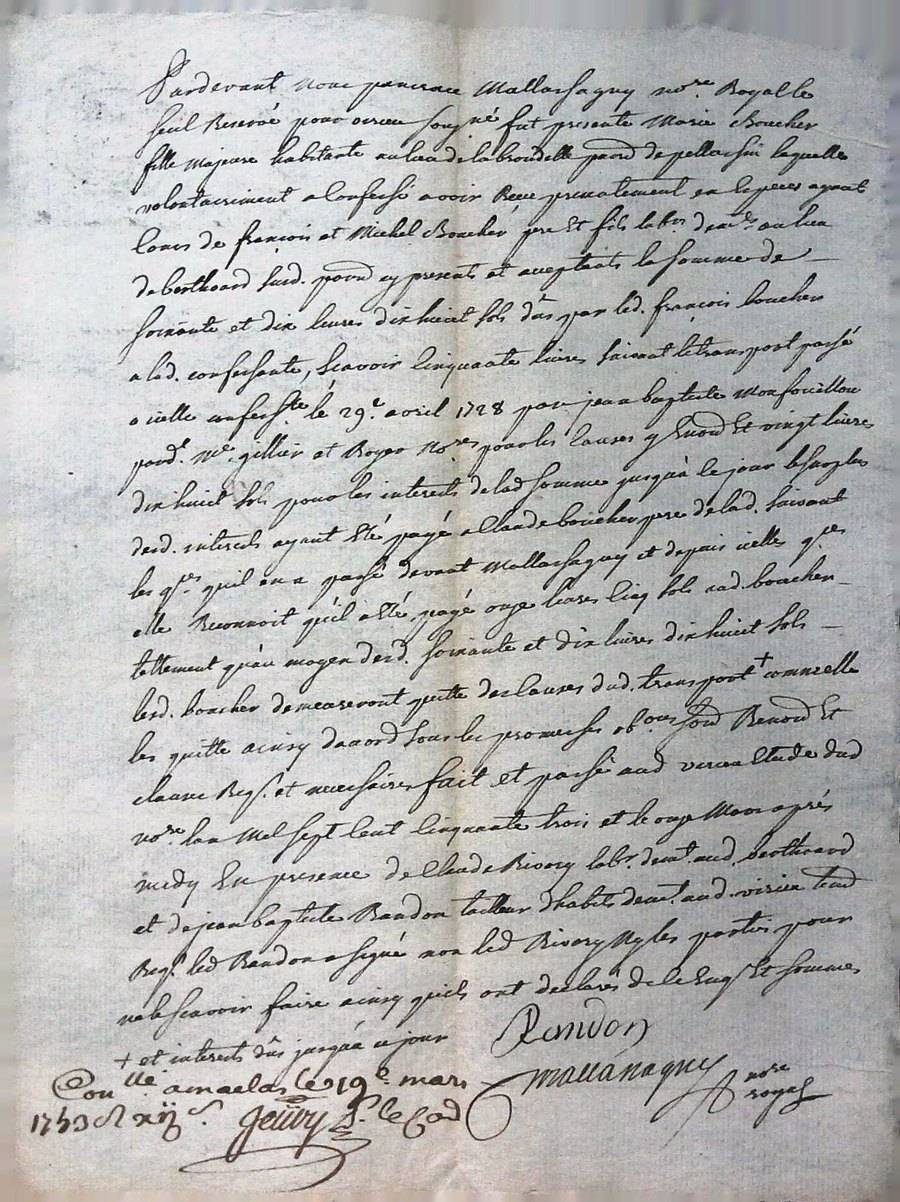 Pardevant nous pancrace Mallassagny no.re Royal le
seul Reservé pour virieu soussigné fut presente Marie Boucher
fille majeure habitante au lieu de la broudelle parr.d de pellassin laquelle
volontairement a Confessé avoir Receu presentement en especes ayant
Cours de françois et Michel Boucher pere Et fils lab.rs dem.ts au lieu
de berthoard susd. parr.d cy presents et acceptants la somme de
soixante et dix livres dix huict sols dûs par led. françois boucher
a lad. confessante, scavoir Cinquante livres suivant le transport passé
a icelle confess.te le 29.e avril 1728 par jean baptiste Monfouillou
pard.t M.e gillier et Roger No.res pour les Causes y Enoncé Et vingt livres
dix huict sols pour les interests de lad somme jusqu'à ce jour le surplus
desd. interests ayant Eté payé a Claude boucher pere de lad. suivant
les q.ces quil en a passé devant Mallassagny et depuis icelles q.ces
elle Reconnoit qu'il a Eté payé onze livres Cinq sols aud. boucher
tellement qu'au moyen desd. soixante et dix livres dix huict sols
lesd. boucher demeureront quitte des Causes dud. transport + comme elle
les quitte ainsy d'accord sous les promesses ob.ons Renon Et
clause Req.s et necessaires fait et passé aud virieu Etude dud
no.re l'an Mil sept Cent Cinquante trois et le onze Mars après
midy En presence de Claude Rivory lab.r dem.t aud. berthoard
et de jean baptiste Randon tailleur d'habits dem.t aud. virieu tem.d
Req.s led Randon a signé non led Rivory Ny les parties pour
ne le scavoir faire ainsy quils ont declaré de ce Enq.s Et sommés
+ et interests dûs jusqu'à ce jour
Randon
Mallassagny no.re royal
Con.llé a maclas le 19.e mars
1753 R xij s. Jeury p. le Cad